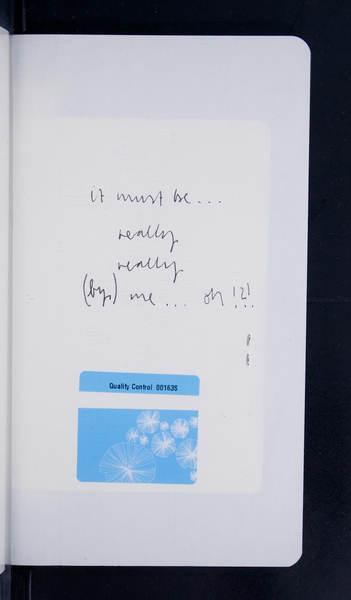 it must be...
really
really
(by) me... oh !?!
Quality Control 001635